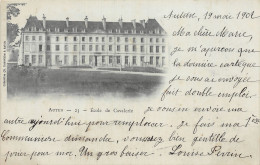 Autun, 19 mai 1902
Ma chère Marie,
je m'aperçois que
la dernière carte
que je vous ai envoyée
fait double emploi
je vous en envoie une
AUTUN — 23 — École de Cavalerie
autre aujourd'hui pour remplacer. je fais ma 1ère
Communion dimanche, vous serez bien gentille de
prier pour moi. Un gros baiser Louise Perrin